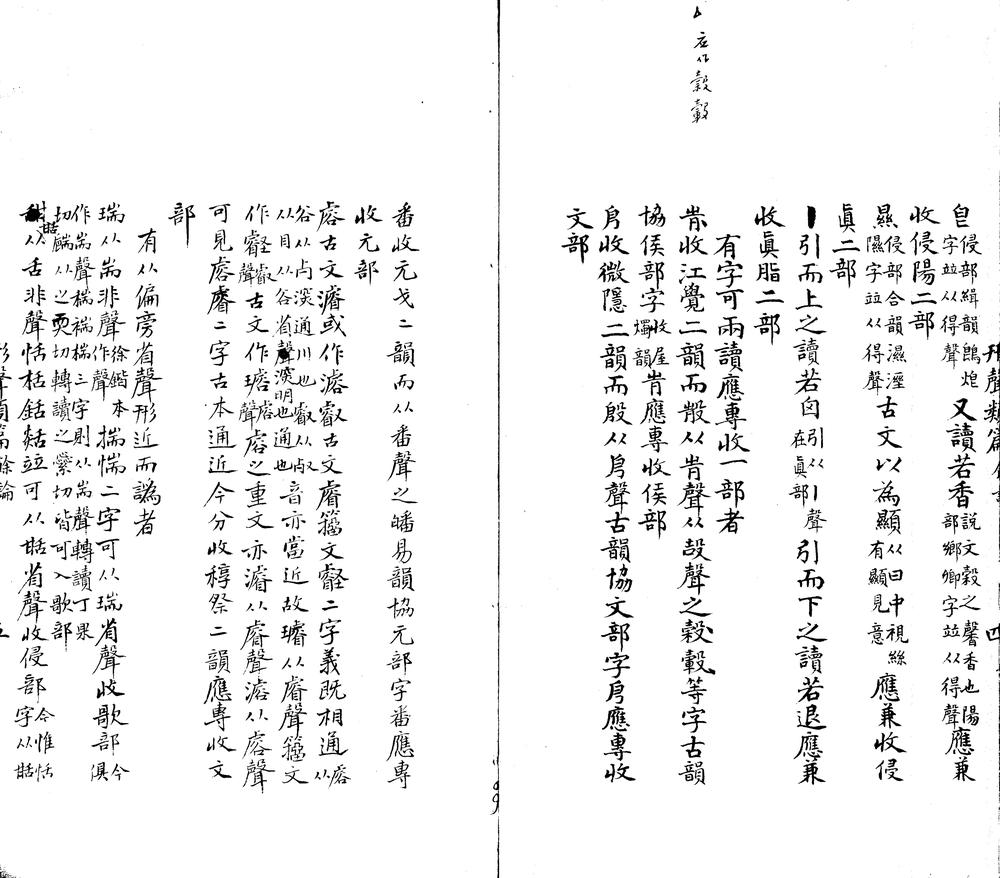 厶应作糓轂
形聲類篇
四
皀侵部緝韻鵖炮字並从得聲又讀若香說文穀之馨香也陽部鄉卿字並从得聲應兼
收侵陽二部
㬎侵部合韻濕溼隰字並从得聲古文以為顯从日中視絲有顯見意應兼收侵
眞二部
丨引而上之讀若囟引从丨聲在眞部引而下之讀若退應兼
收眞脂二部
有字可兩讀應專收一部者
㡿收江覺二韻而㱿从㡿聲从㱿聲之榖轂等字古韻
協侯部字燭屋韻收㡿應專收侯部
㐆收微隱二韻而殷从㐆聲古韻協文部字㐆應專收
文部
番收元戈二韻而从番聲之皤易韻協元部字番應專
收元部
睿古文濬或作濬叡古文睿籀文壡二字義既相通
音亦當近故璿从睿聲籀文
可見㕡睿二字古本通近今分收稕祭二韻應專收文
部
有从偏旁省聲形近而譌者
瑞从耑非聲徐鍇本作聲揣惴二字可从瑞省聲收歌部今俱
作耑聲椯褍楇三字則从耑聲轉讀丁果
切㒼从之耎切轉讀之縈切皆可入歌部
甜从舌非聲恬枯銛䑚竝可从甜省聲收侵部今惟恬字从甜
形聲類篇餘論
五